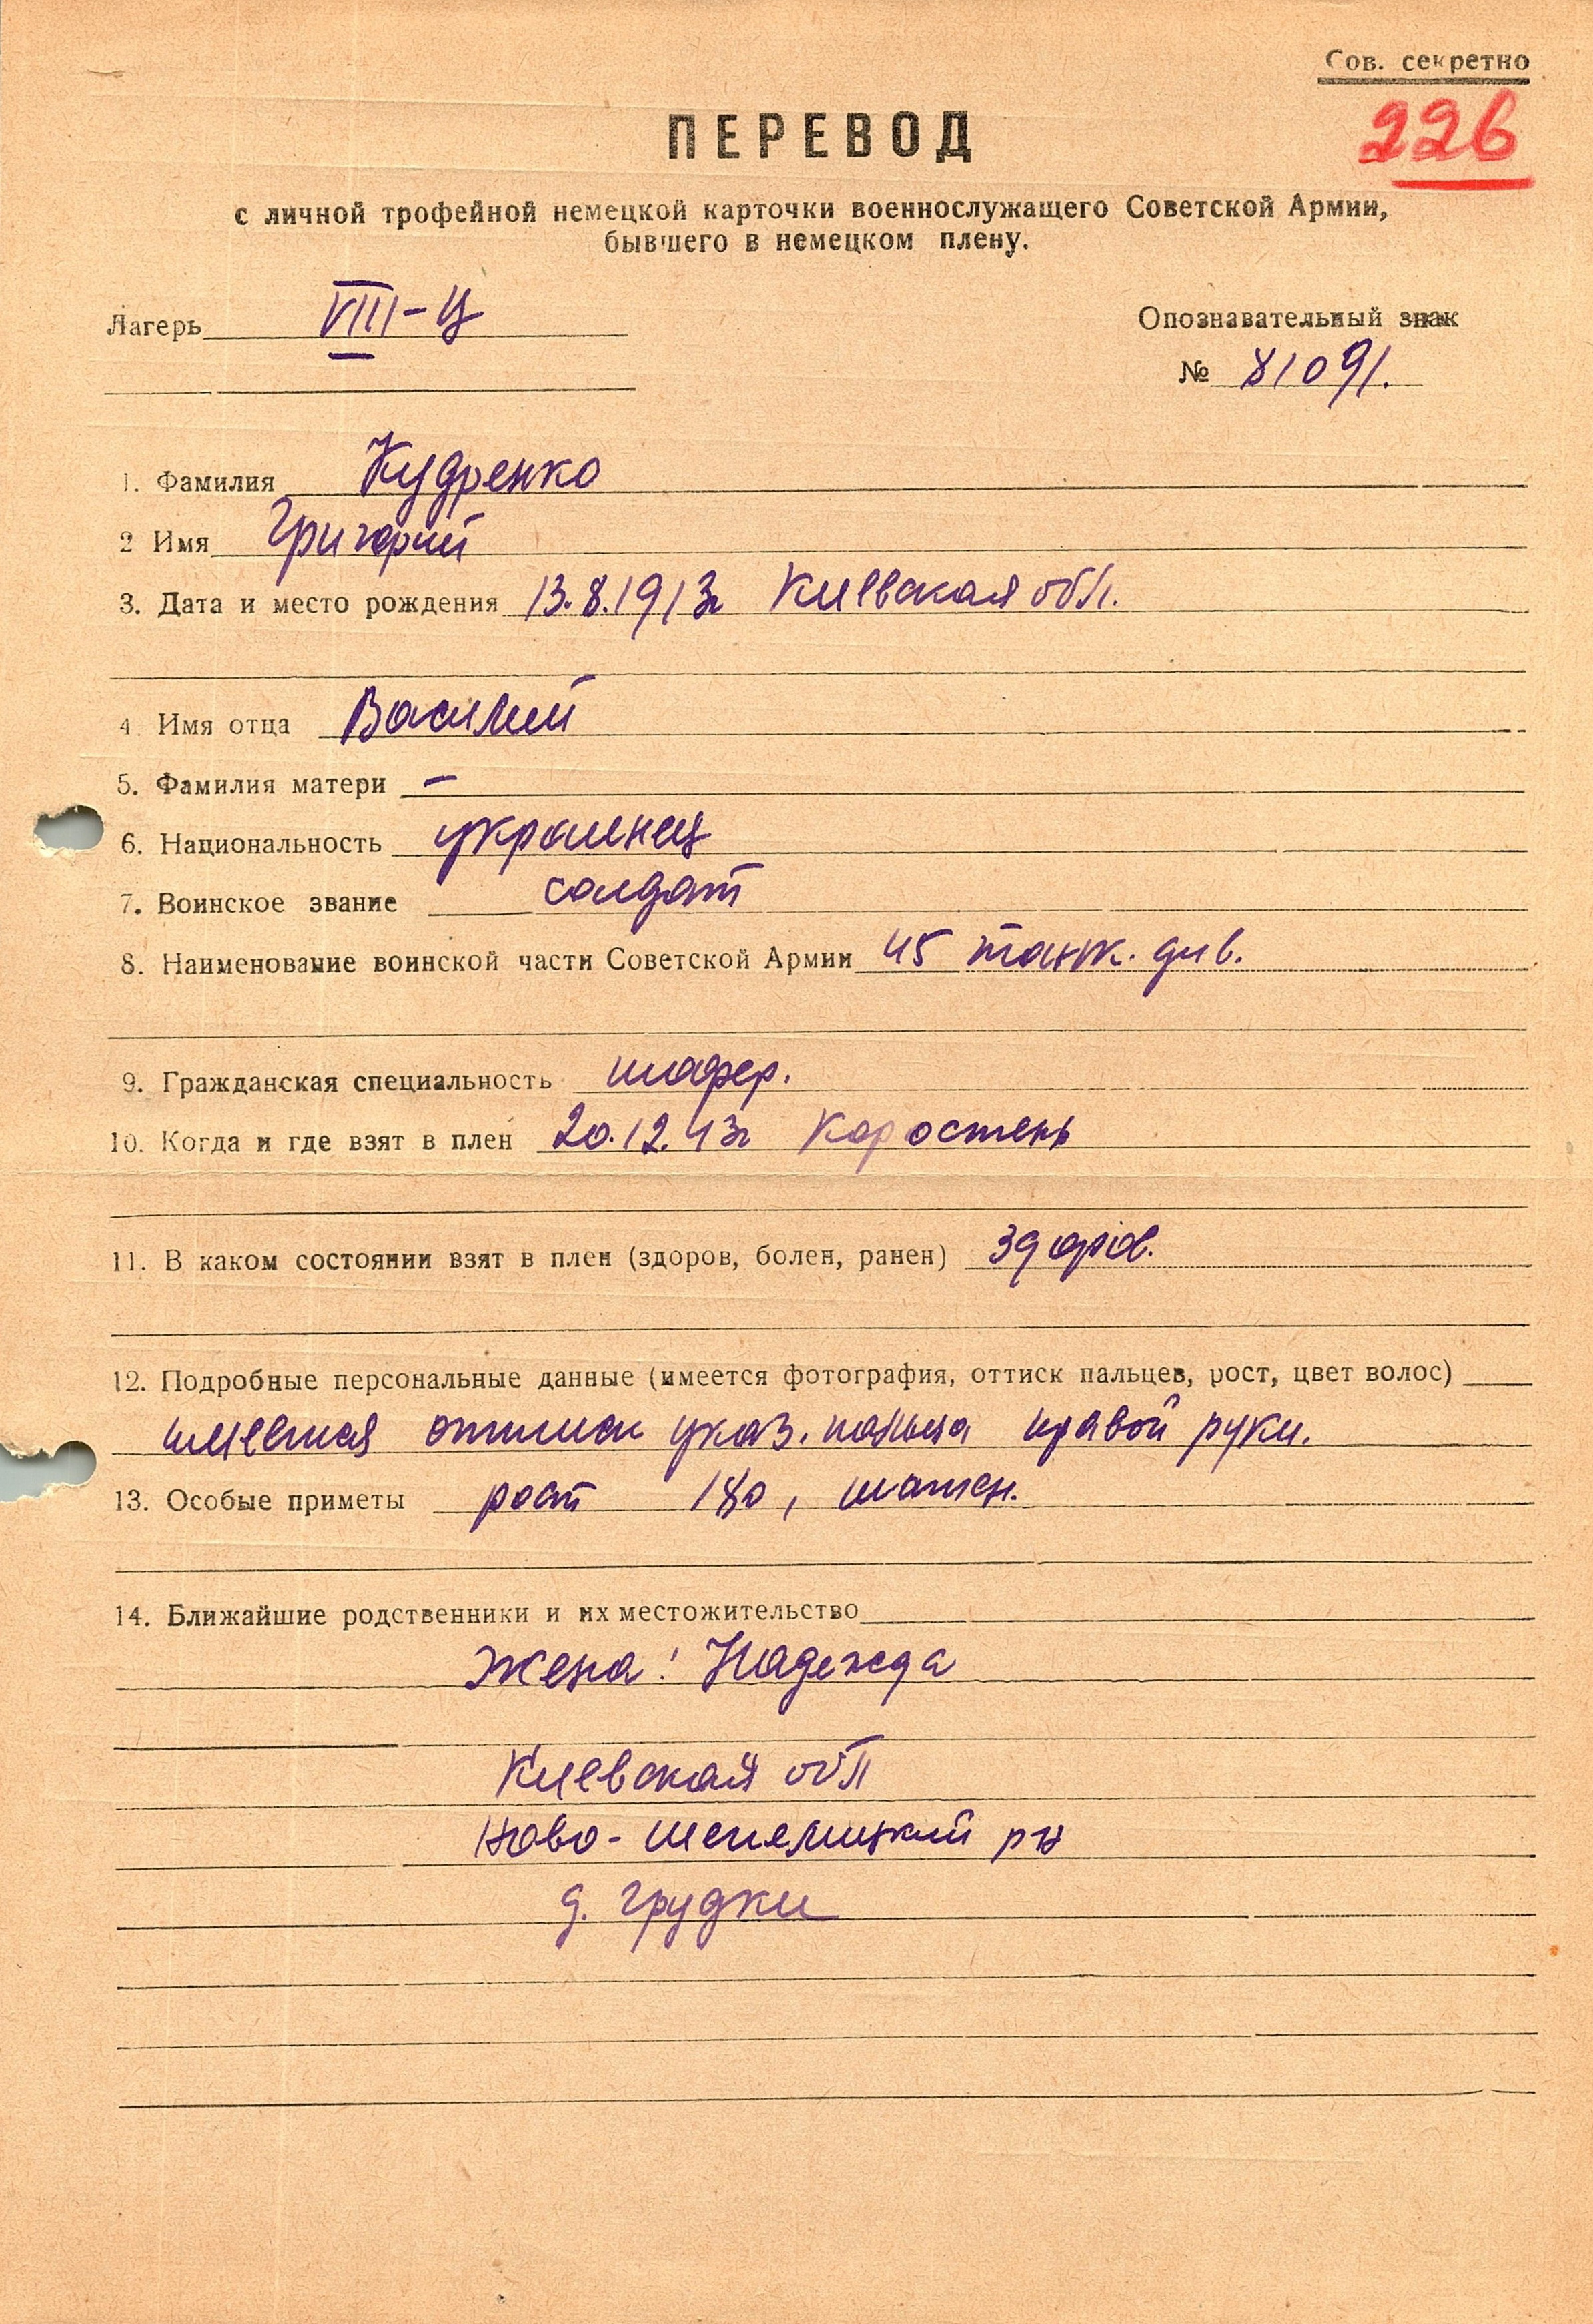 Сов. секретно
226
ПЕРЕВОД
с личной трофейной немецкой карточки военнослужащего Советской Армии,
бывшего в немецком плену.
Лагерь VIII-Ц
Опознавательный знак
№ 81091.
1. Фамилия Кудренко
2 Имя Григорий
3. Дата и место рождения 13.8.1913г Киевская обл.
4. Имя отца Василий
5. Фамилия матери –
6. Национальность украинец
7. Воинское звание солдат
8. Наименование воинской части Советской Армии 45 танк. див.
9. Гражданская специальность шофер.
10. Когда и где взят в плен 20.12.43г Коростень
11. В каком состоянии взят в плен (здоров, болен, ранен) здоров.
12. Подробные персональные данные (имеется фотография, оттиск пальцев, рост, цвет волос)
имеется оттиск указ. пальца правой руки.
13. Особые приметы рост 180, шатен.
14. Ближайшие родственники и их местожительство
Жена: Надежда
Киевская обл
Ново-Шепелицкий р-н
д. Грудки